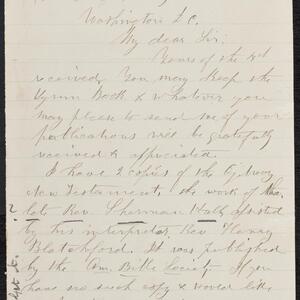 Washington D.C.
My dear Sir:
Yours of the 3d
received. You may keep the
Hymn Book & whatever you
may please to send me of your
publications will be gratefully
received & appreciated.
I have 2 copies of the Ojibway
New Testament, the work of the
? late Rev. Sherman Hall, assisted
by his interpreter, Rev. Henry
Blatchford. It was published
by the Am. Bible Society. If you
have no such copy & would like